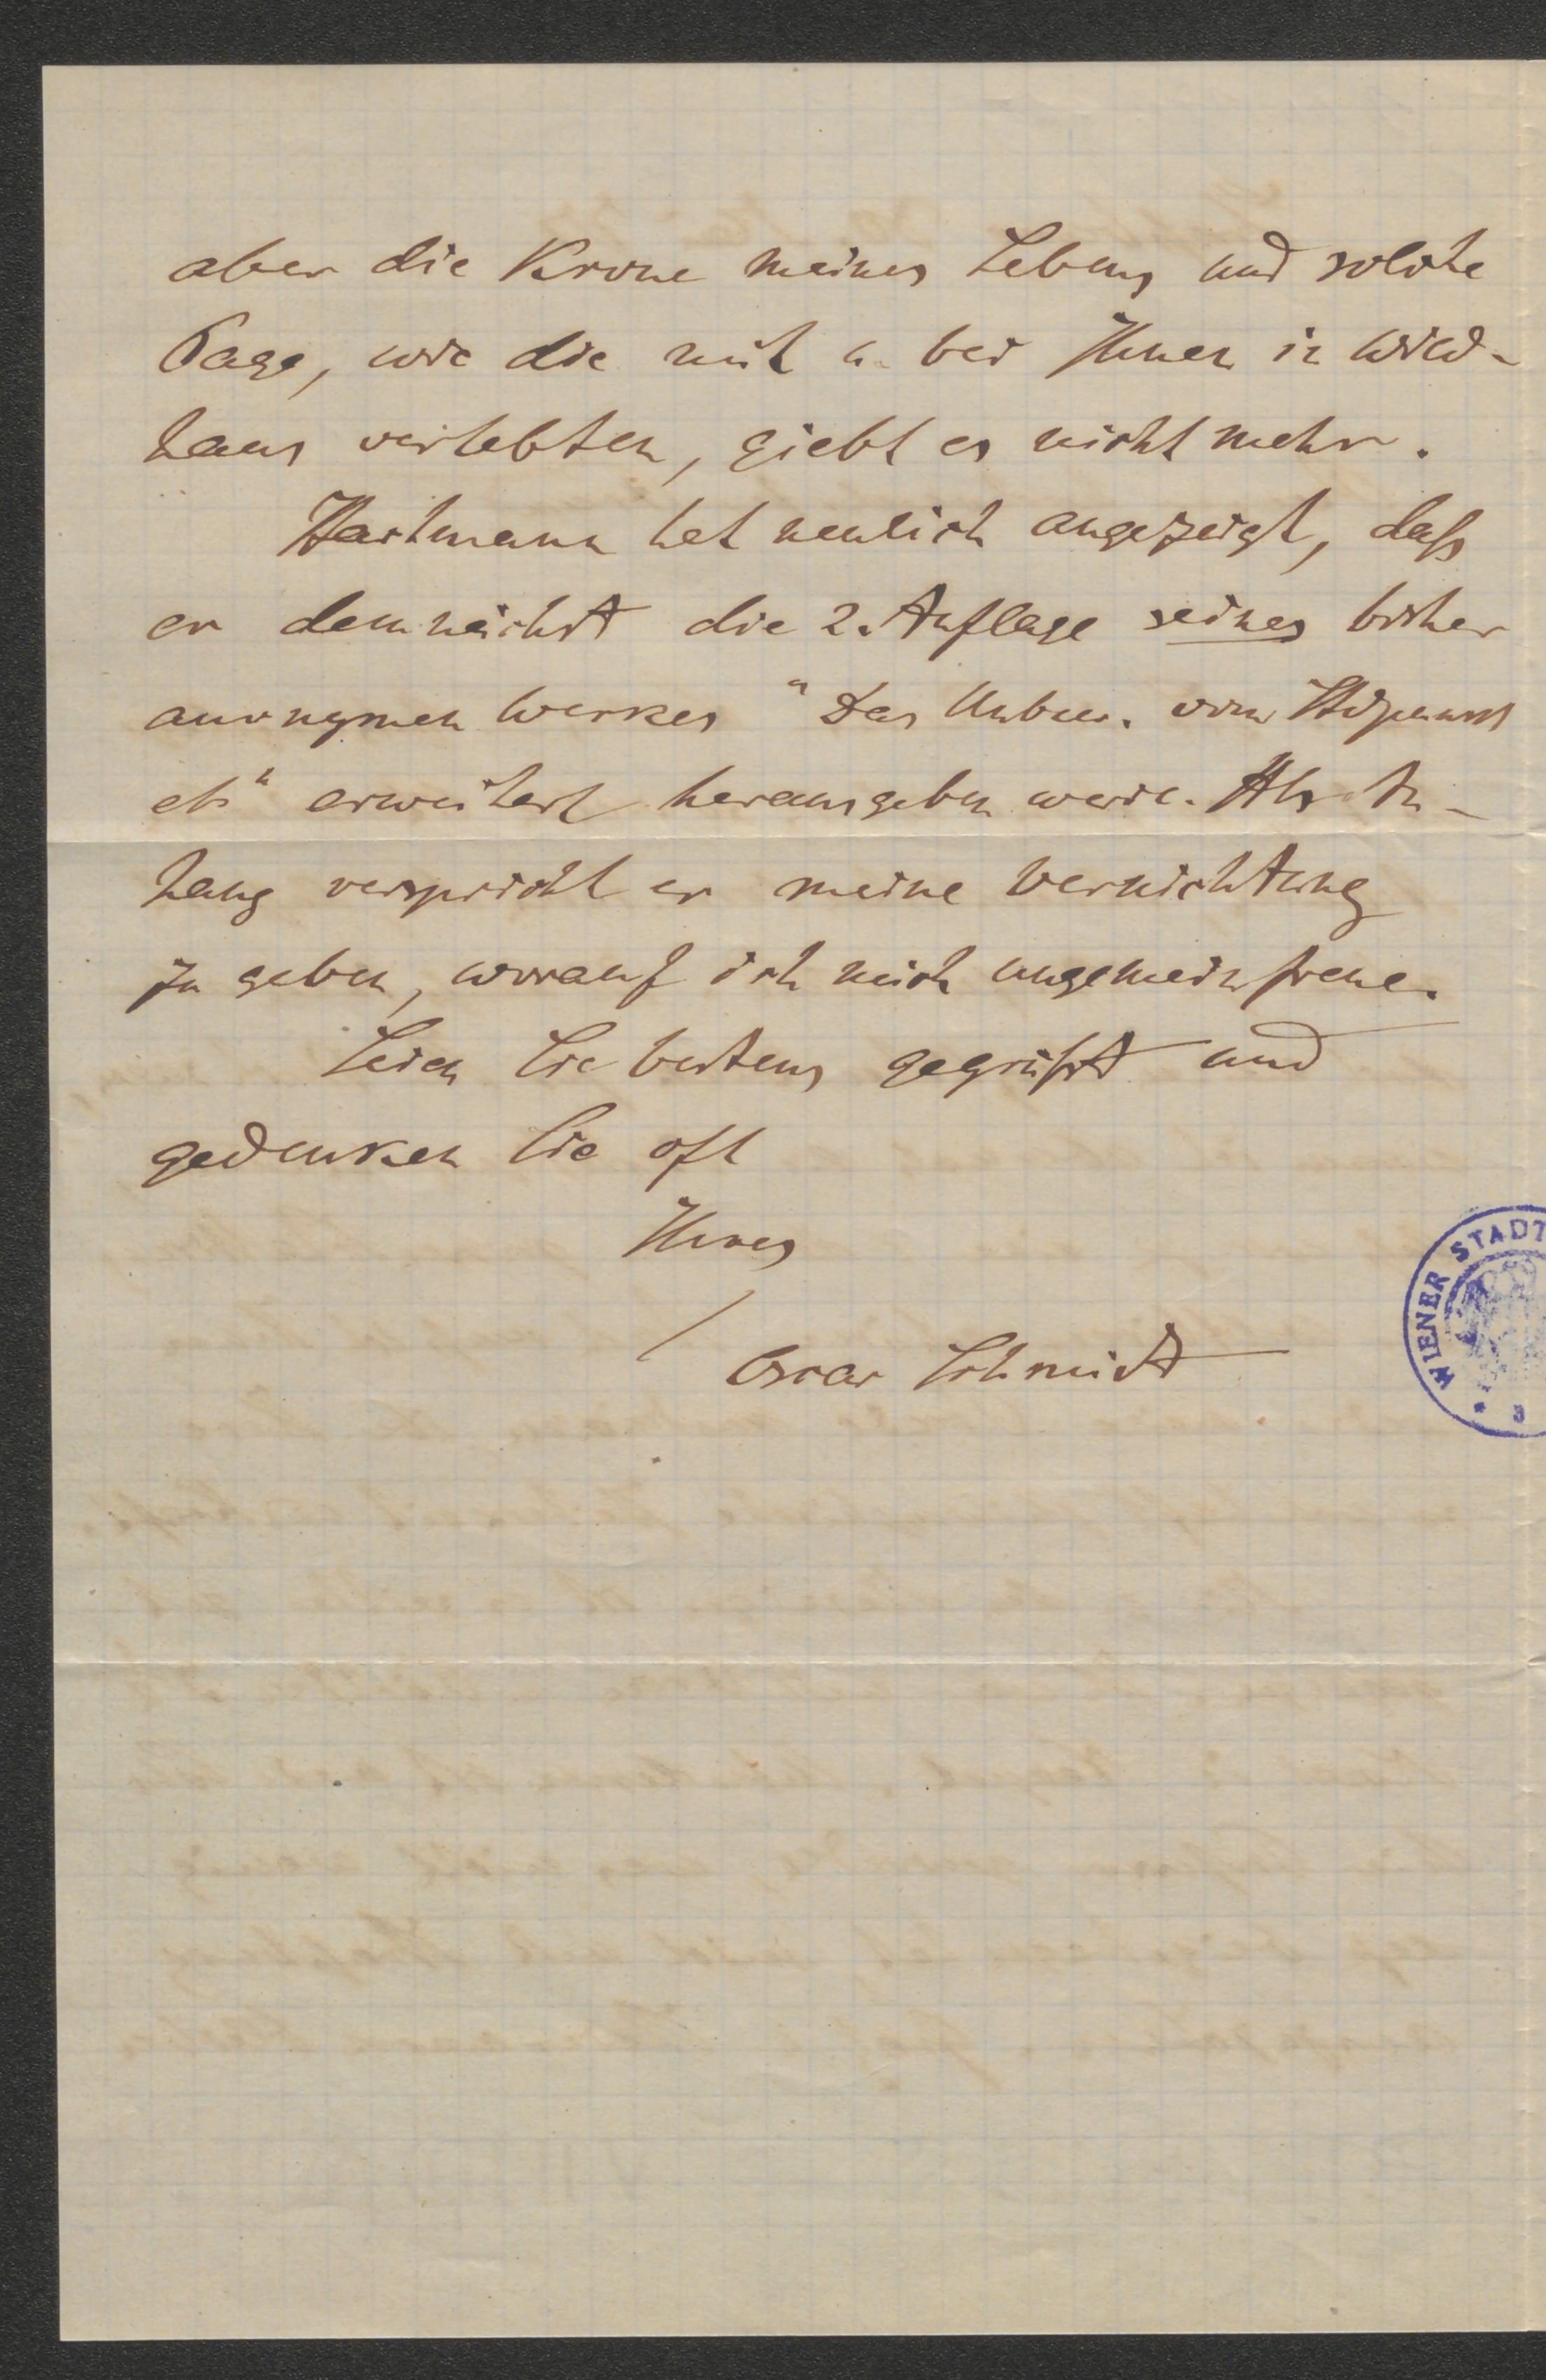 aber die Krone meines Lebens und solche
Tage, wie die mit u. bei Ihnen in Wild-
haus verlebten, giebt es nicht mehr.
Hartmann hat neulich angezeigt, daß
er demnächst die 2. Auflage seines bisher
anonymen Werkes "Das Unbew. vom Stdpunct
etc" erweitert herausgeben werde. Als An-
hang verspricht er meine Vernichtung
zu geben, worauf ich mich ungemein freue.
Seien Sie bestens gegrüßt und
gedenken Sie oft
Ihres
Oscar Schmidt
WIENER STADT